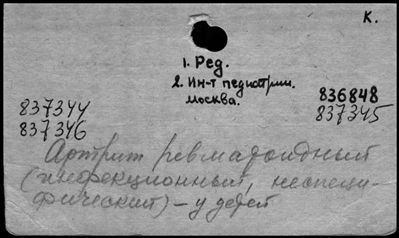 К.
1. Ред.
2. Ин-т педиатрии.
Москва.
837344
837346
836848
837345
Артрит ревматоидный
(инфекционный, неспеци-
фический) – у детей